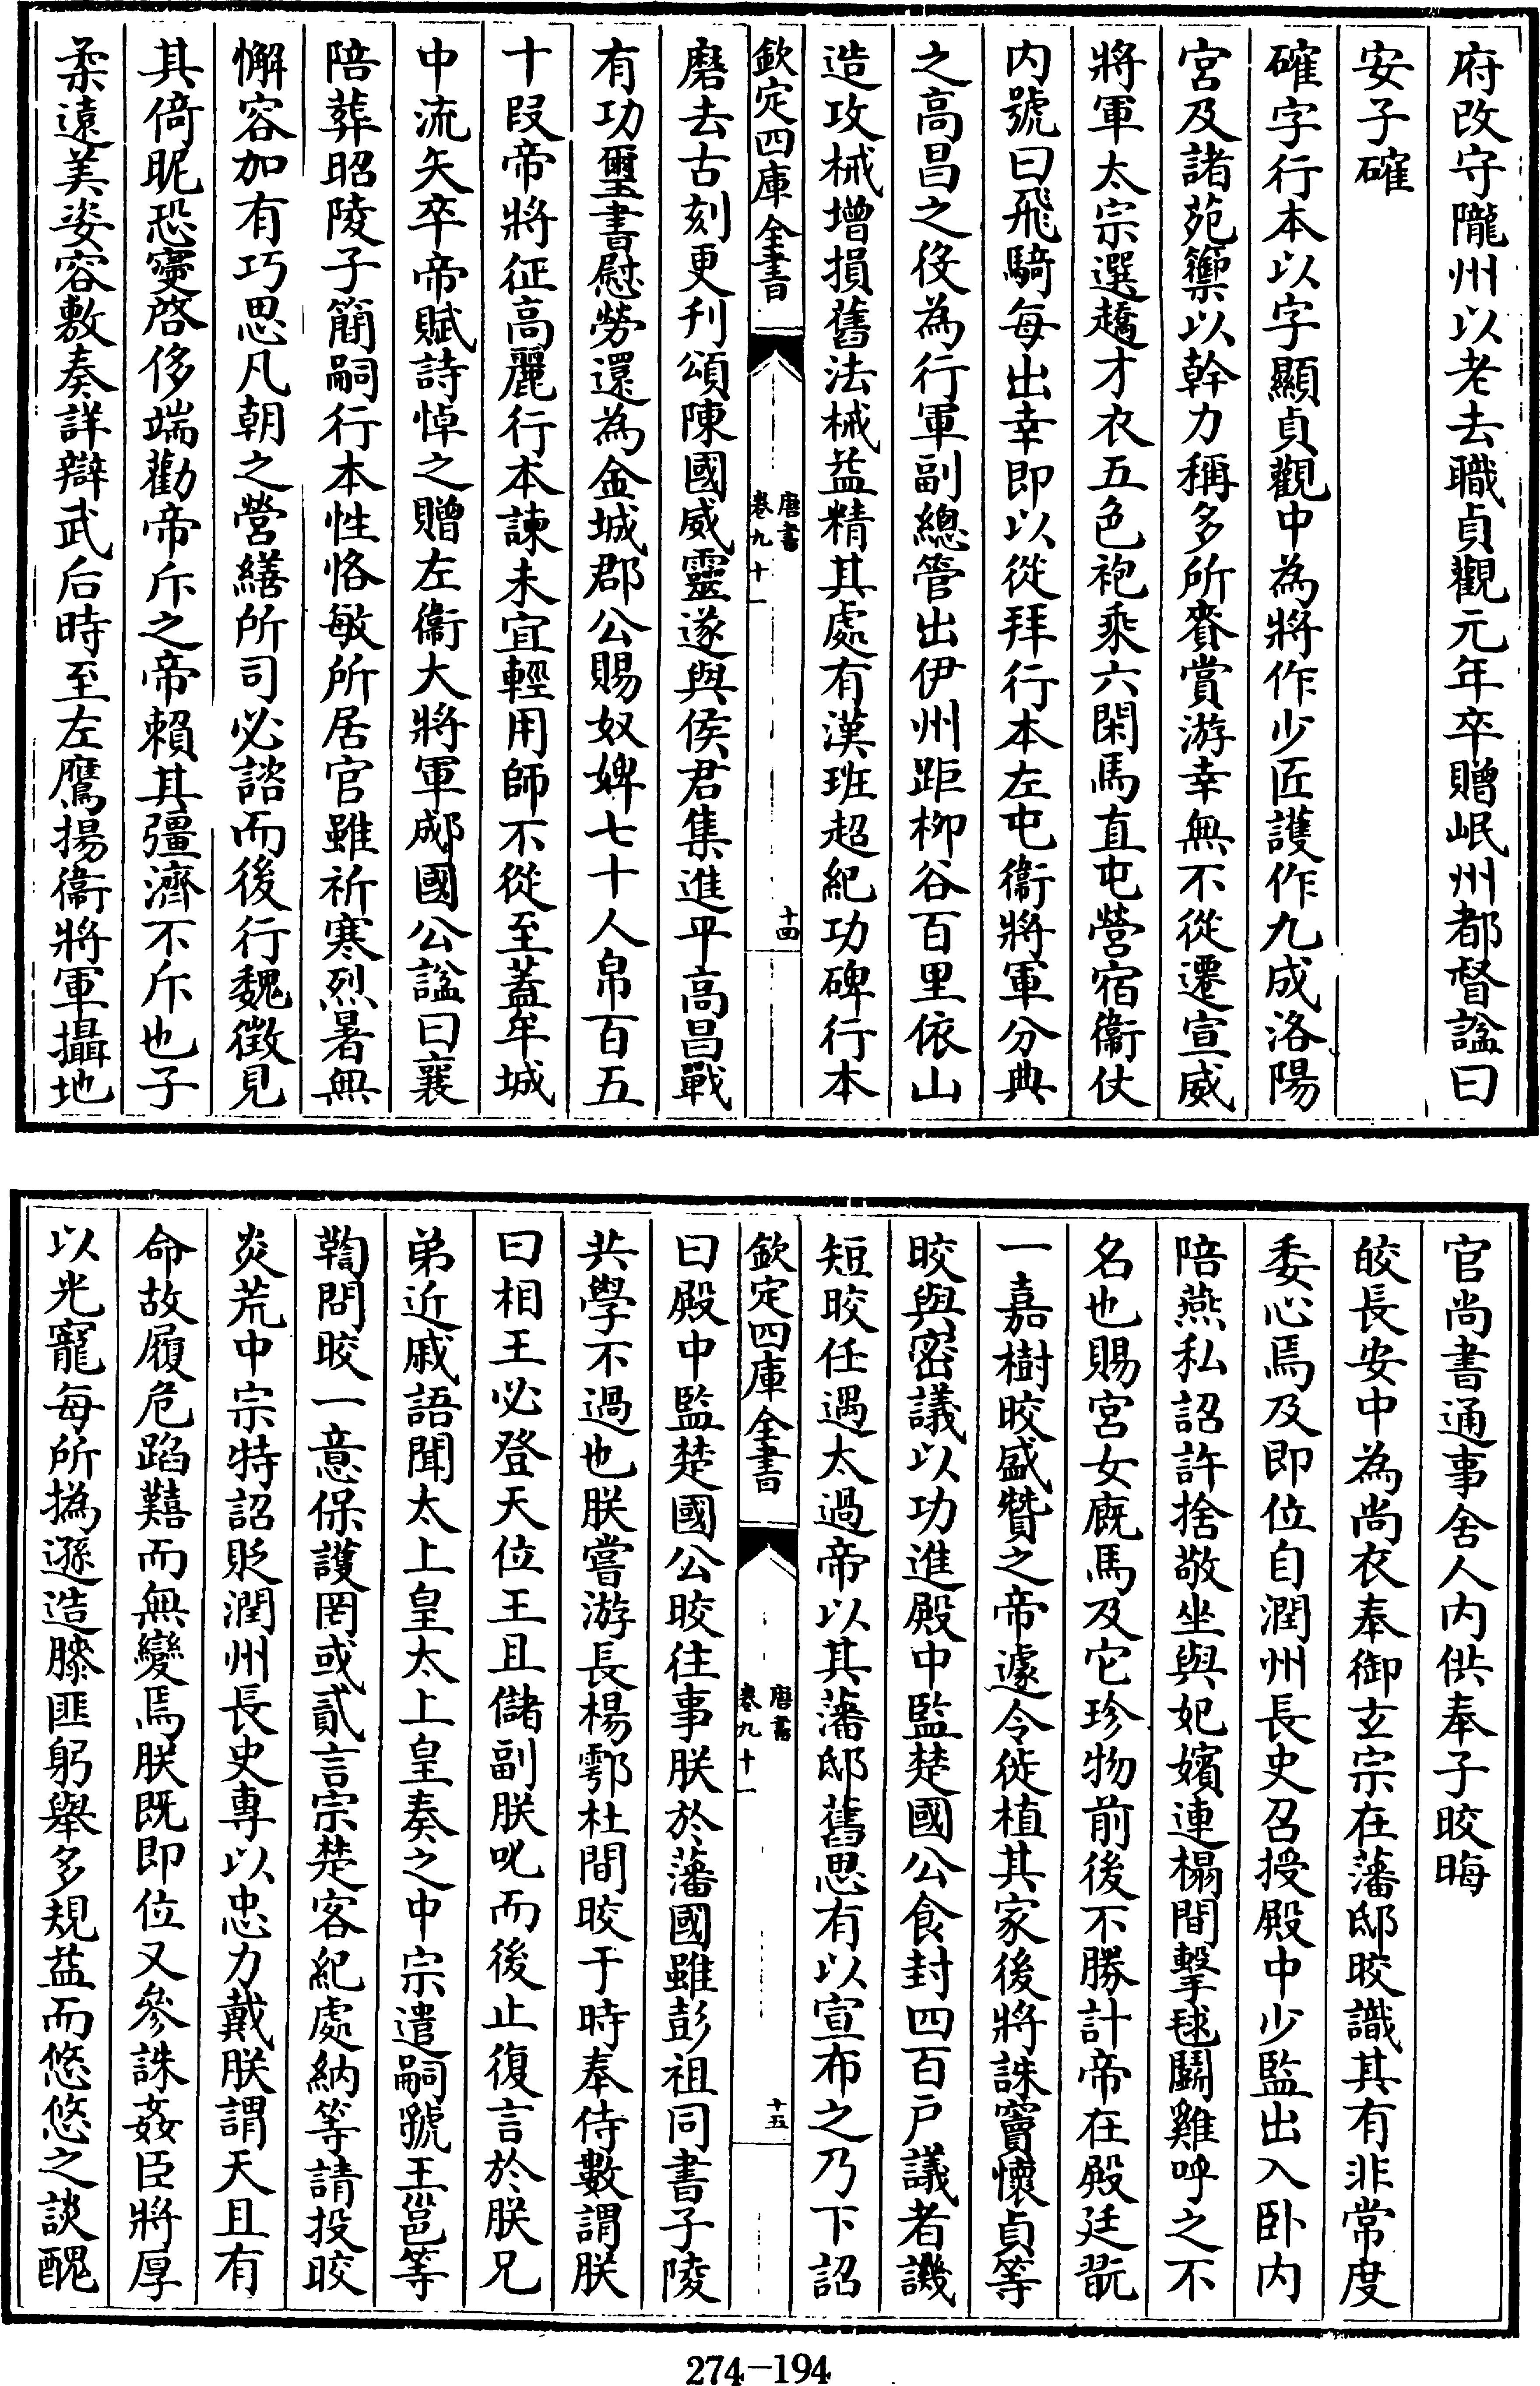 府改守隴州以老去職貞觀元年卒贈岷州都督謚曰
安子確
確字行本以字顯貞觀中為將作少匠護作九成洛陽
宮及諸苑籞以幹力稱多所賚賞游幸無不從遷宣威
將軍太宗選趫才衣五色袍乘六閑馬直屯營宿衞仗
内號曰飛騎每出幸即以從拜行本左屯衞將軍分典
之高昌之役為行軍副總管出伊州距柳谷百里依山
造攻械增損舊法械益精其處有漢班超紀功碑行本
欽定四庫全書
唐書
卷九十一
十四
磨去古刻更刋頌陳國威靈遂與侯君集進平高昌戰
有功璽書慰勞還為金城郡公賜奴婢七十人帛百五
十段帝將征高麗行本諫未宜輕用師不從至蓋牟城
中流矢卒帝賦詩悼之贈左衞大將軍郕國公謚曰襄
陪葬昭陵子簡嗣行本性恪敏所居官雖祈寒烈暑無
懈容加有巧思凡朝之營繕所司必諮而後行魏徵見
其倚昵恐寖啓侈端勸帝斥之帝賴其彊濟不斥也子
柔遠美姿容敷奏詳辯武后時至左鷹揚衞將軍攝地
官尚書通事舍人内供奉子晈晦
晈長安中為尚衣奉御玄宗在藩邸晈識其有非常度
委心焉及即位自潤州長史召授殿中少監出入卧内
陪燕私詔許捨敬坐與妃嬪連榻間擊毬鬭雞呼之不
名也賜宮女廐馬及它珍物前後不勝計帝在殿廷翫
一嘉樹晈盛贊之帝遽令徙植其家後將誅竇懷貞等
晈與密議以功進殿中監楚國公食封四百戶議者譏
短晈任遇太過帝以其藩邸舊思有以宣布之乃下詔
欽定四庫全書
唐書
卷九十一
十五
曰殿中監楚國公晈往事朕於藩國雖彭祖同書子陵
共學不過也朕嘗游長楊鄠杜間晈于時奉侍數謂朕
曰相王必登天位王且儲副朕叱而後止復言於朕兄
弟近戚語聞太上皇太上皇奏之中宗遣嗣虢王邕等
鞫問晈一意保護罔或貳言宗楚客紀處納等請投晈
炎荒中宗特詔貶潤州長史專以忠力戴朕謂天且有
命故履危蹈囏而無變焉朕既即位又參誅姦臣將厚
以光寵每所撝遜造膝匪躬舉多規益而悠悠之談醜
274-194